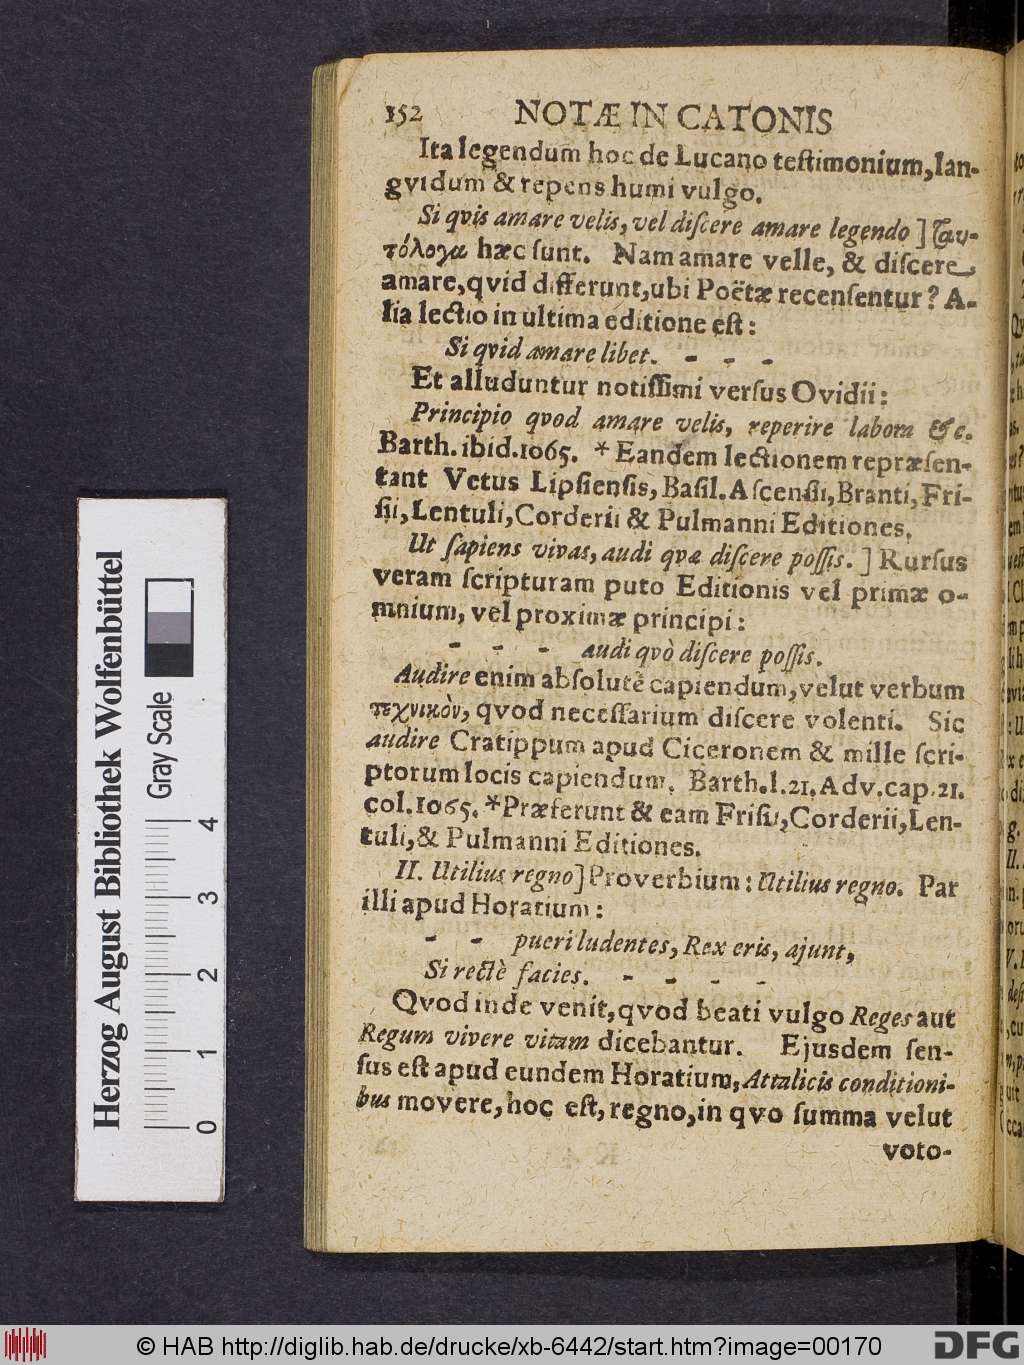 152 NOTÆ IN CATONIS
Ita legendum hoc de Lucano teſtimonium, lan-
gvidum & repens humi vulgo.
Si qvis amare velis, vel diſcere amare legendo ] Ταυ-
τόλογα hæc ſunt. Nam amare velle, & diſcere
amare, qvid differunt, ubi Poëtæ recenſentur? A-
lia lectio in ultima editione eſt:
Si qvid amare libet. - - -
Et alluduntur notiſſimi verſus Ovidii:
Principio qvod amare velis, reperire labora &c.
Barth. ibid. 1065. * Eandem lectionem repræſen-
tant Vetus Lipſienſis, Baſil. Aſcenſii, Branti, Fri-
ſii, Lentuli, Corderii & Pulmanni Editiones.
Ut ſapiens vivas, audi qvæ diſcere poſſis. ] Rurſus
veram ſcripturam puto Editionis vel primæ o-
mnium, vel proximæ principi:
- - - audi qvò diſcere poſſis.
Audire enim abſolutè capiendum, velut verbum
τεχνικὸν, qvod neceſſarium diſcere volenti. Sic
audire Cratippum apud Ciceronem & mille ſcri-
ptorum locis capiendum. Barth. l. 21. Adv. cap. 21.
col. 1065. * Præferunt & eam Friſii, Corderii, Len-
tuli, & Pulmanni Editiones.
II. Utilius regno] Proverbium: Utilius regno. Par
illi apud Horatium:
- - pueri ludentes, Rex eris, ajunt,
Si rectè facies. - - - -
Qvod inde venit, qvod beati vulgo Reges aut
Regum vivere vitam dicebantur. Ejusdem ſen-
ſus eſt apud eundem Horatium, Attalicis conditioni-
bus movere, hoc eſt, regno, in qvo ſumma velut
voto-
Herzog August Bibliothek Wolfenbüttel
Gray Scale
0 1 2 3 4
© HAB http://diglib.hab.de/drucke/xb-6442/start.htm?image=00170
DFG